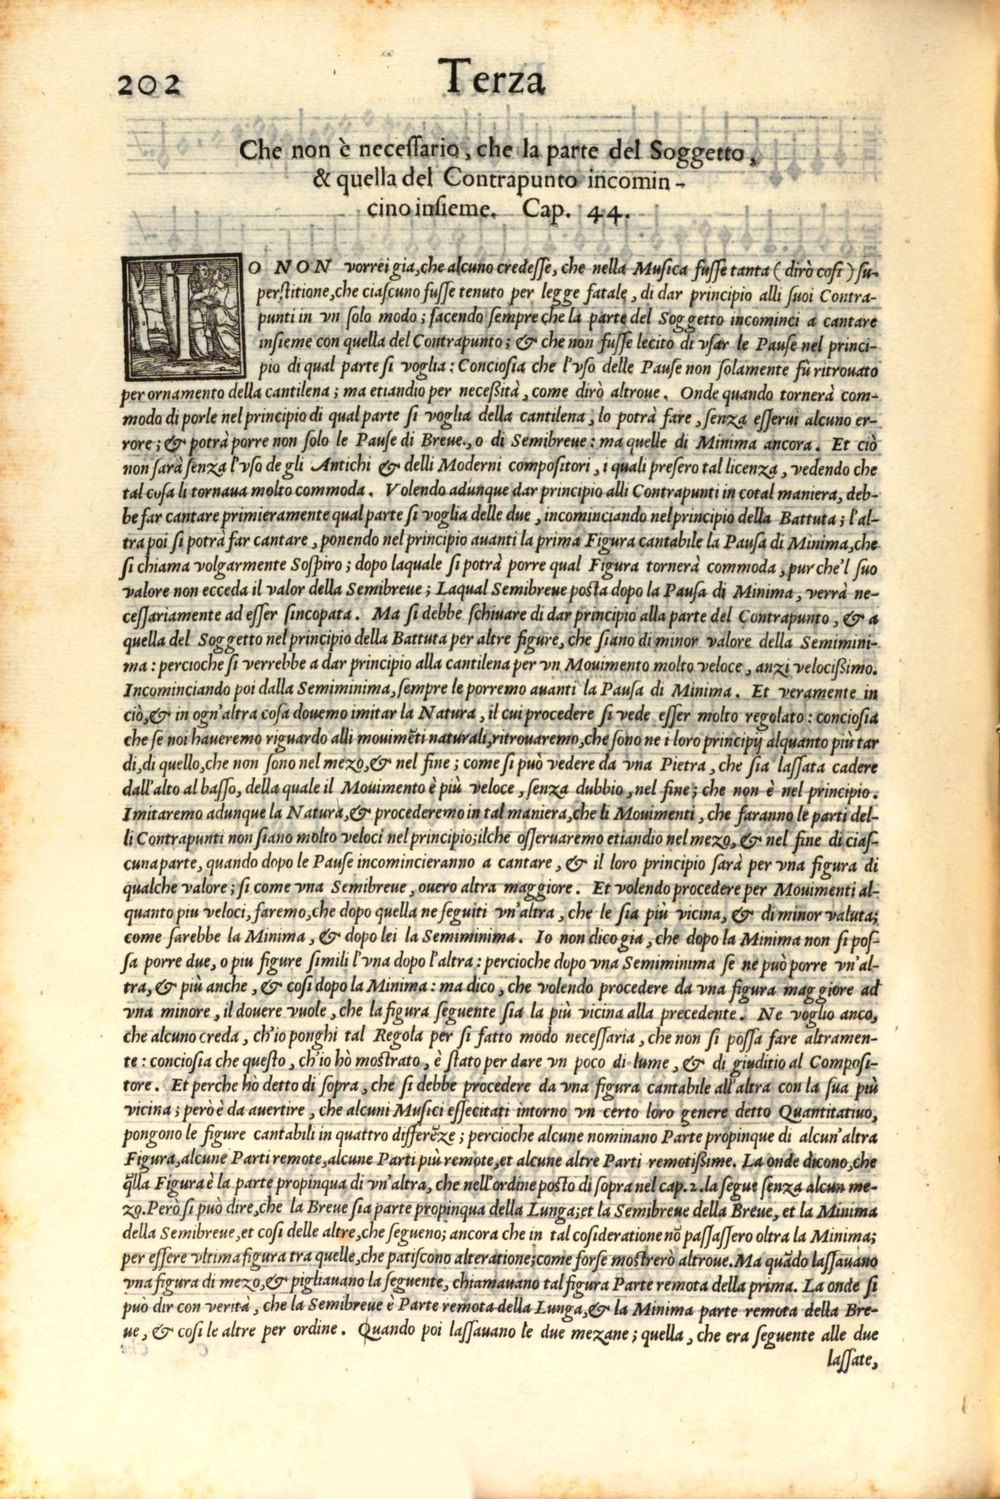 202
Terza
Che non è necessario, che la parte del Soggetto,
& quella del Contrapunto incomin-
cino insieme. Cap. 44.
IO NON vorrei gia, che alcuno credesse, che nella Musica fusse tanta (dirò cosi) su-
perstitione, che ciascuno fusse tenuto per legge fatale, di dar principio alli suoi Contra-
punti in vn solo modo; facendo sempre che la parte del Soggetto incominci a cantare
insieme con quella del Contrapunto; & che non fusse lecito di vsar le Pause nel princi-
pio di qual parte si voglia: Conciosia che l'vso delle Pause non solamente fù ritrouato
per ornamento della cantilena; ma etiandio per necessità, come dirò altroue. Onde quando tornerà com-
modo di porle nel principio di qual parte si voglia della cantilena, lo potrà fare, senza esserui alcuno er-
rore; & potrà porre non solo le Pause di Breue, o di Semibreue: ma quelle di Minima ancora. Et ciò
non sarà senza l'vso de gli Antichi & delli Moderni compositori, i quali presero tal licenza, vedendo che
tal cosa li tornaua molto commoda. Volendo adunque dar principio alli Contrapunti in cotal maniera, deb-
be far cantare primieramente qual parte si voglia delle due, incominciando nel principio della Battuta; l'al-
tra poi si potrà far cantare, ponendo nel principio auanti la prima Figura cantabile la Pausa di Minima, che
si chiama volgarmente Sospiro; dopo laquale si potrà porre qual Figura tornerà commoda, pur che'l suo
valore non ecceda il valor della Semibreue; Laqual Semibreue posta dopo la Pausa di Minima, verrà ne-
cessariamente ad esser sincopata. Ma si debbe schiuare di dar principio alla parte del Contrapunto, & a
quella del Soggetto nel principio della Battuta per altre figure, che siano di minor valore della Semimini-
ma: percioche si verrebbe a dar principio alla cantilena per vn Mouimento molto veloce, anzi velocissimo.
Incominciando poi dalla Semiminima, sempre le porremo auanti la Pausa di Minima. Et veramente in
ciò, & in ogn'altra cosa douemo imitar la Natura, il cui procedere si vede esser molto regolato: conciosia
che se noi haueremo riguardo alli mouimēti naturali, ritrouaremo, che sono ne i loro principij alquanto più tar
di, di quello, che non sono nel mezo, & nel fine; come si può vedere da vna Pietra, che sia lassata cadere
dall'alto al basso, della quale il Mouimento è più veloce, senza dubbio, nel fine; che non è nel principio.
Imitaremo adunque la Natura, & procederemo in tal maniera, che li Mouimenti, che faranno le parti del-
li Contrapunti non siano molto veloci nel principio; ilche osseruaremo etiandio nel mezo, & nel fine di cias-
cuna parte, quando dopo le Pause incomincieranno a cantare, & il loro principio sarà per vna figura di
qualche valore; si come vna Semibreue, ouero altra maggiore. Et volendo procedere per Mouimenti al-
quanto piu veloci, faremo, che dopo quella ne seguiti vn'altra, che le sia più vicina, & di minor valuta;
come sarebbe la Minima, & dopo lei la Semiminima. Io non dico gia, che dopo la Minima non si pos-
sa porre due, o piu figure simili l'vna dopo l'altra: percioche dopo vna Semiminima se ne può porre vn'al-
tra, & più anche, & cosi dopo la Minima: ma dico, che volendo procedere da vna figura maggiore ad
vna minore, il douere vuole, che la figura seguente sia la più vicina alla precedente. Ne voglio anco,
che alcuno creda, ch'io ponghi tal Regola per si fatto modo necessaria, che non si possa fare altramen-
te: conciosia che questo, ch'io hò mostrato, è stato per dare vn poco di lume, & di giuditio al Composi-
tore. Et perche hò detto di sopra, che si debbe procedere da vna figura cantabile all'altra con la sua più
vicina; però è da auertire, che alcuni Musici essecitati intorno vn certo loro genere detto Quantitatiuo,
pongono le figure cantabili in quattro differēze; percioche alcune nominano Parte propinque di alcun'altra
Figura, alcune Parti remote, alcune Parti più remote, et alcune altre Parti remotissime. La onde dicono, che
q̄lla Figura è la parte propinqua di vn'altra, che nell'ordine posto di sopra nel cap. 2. la segue senza alcun me-
zo. Però si può dire, che la Breue sia parte propinqua della Lunga; et la Semibreue della Breue, et la Minima
della Semibreue, et cosi delle altre, che segueno; ancora che in tal cōsideratione nō passassero oltra la Minima;
per essere vltima figura tra quelle, che patiscono alteratione; come forse mostrerò altroue. Ma quādo lassauano
vna figura di mezo, & pigliauano la seguente, chiamauano tal figura Parte remota della prima. La onde si
può dir con verità, che la Semibreue è Parte remota della Lunga, & la Minima parte remota della Bre-
ue, & cosi le altre per ordine. Quando poi lassauano le due mezane; quella, che era seguente alle due
lassate,